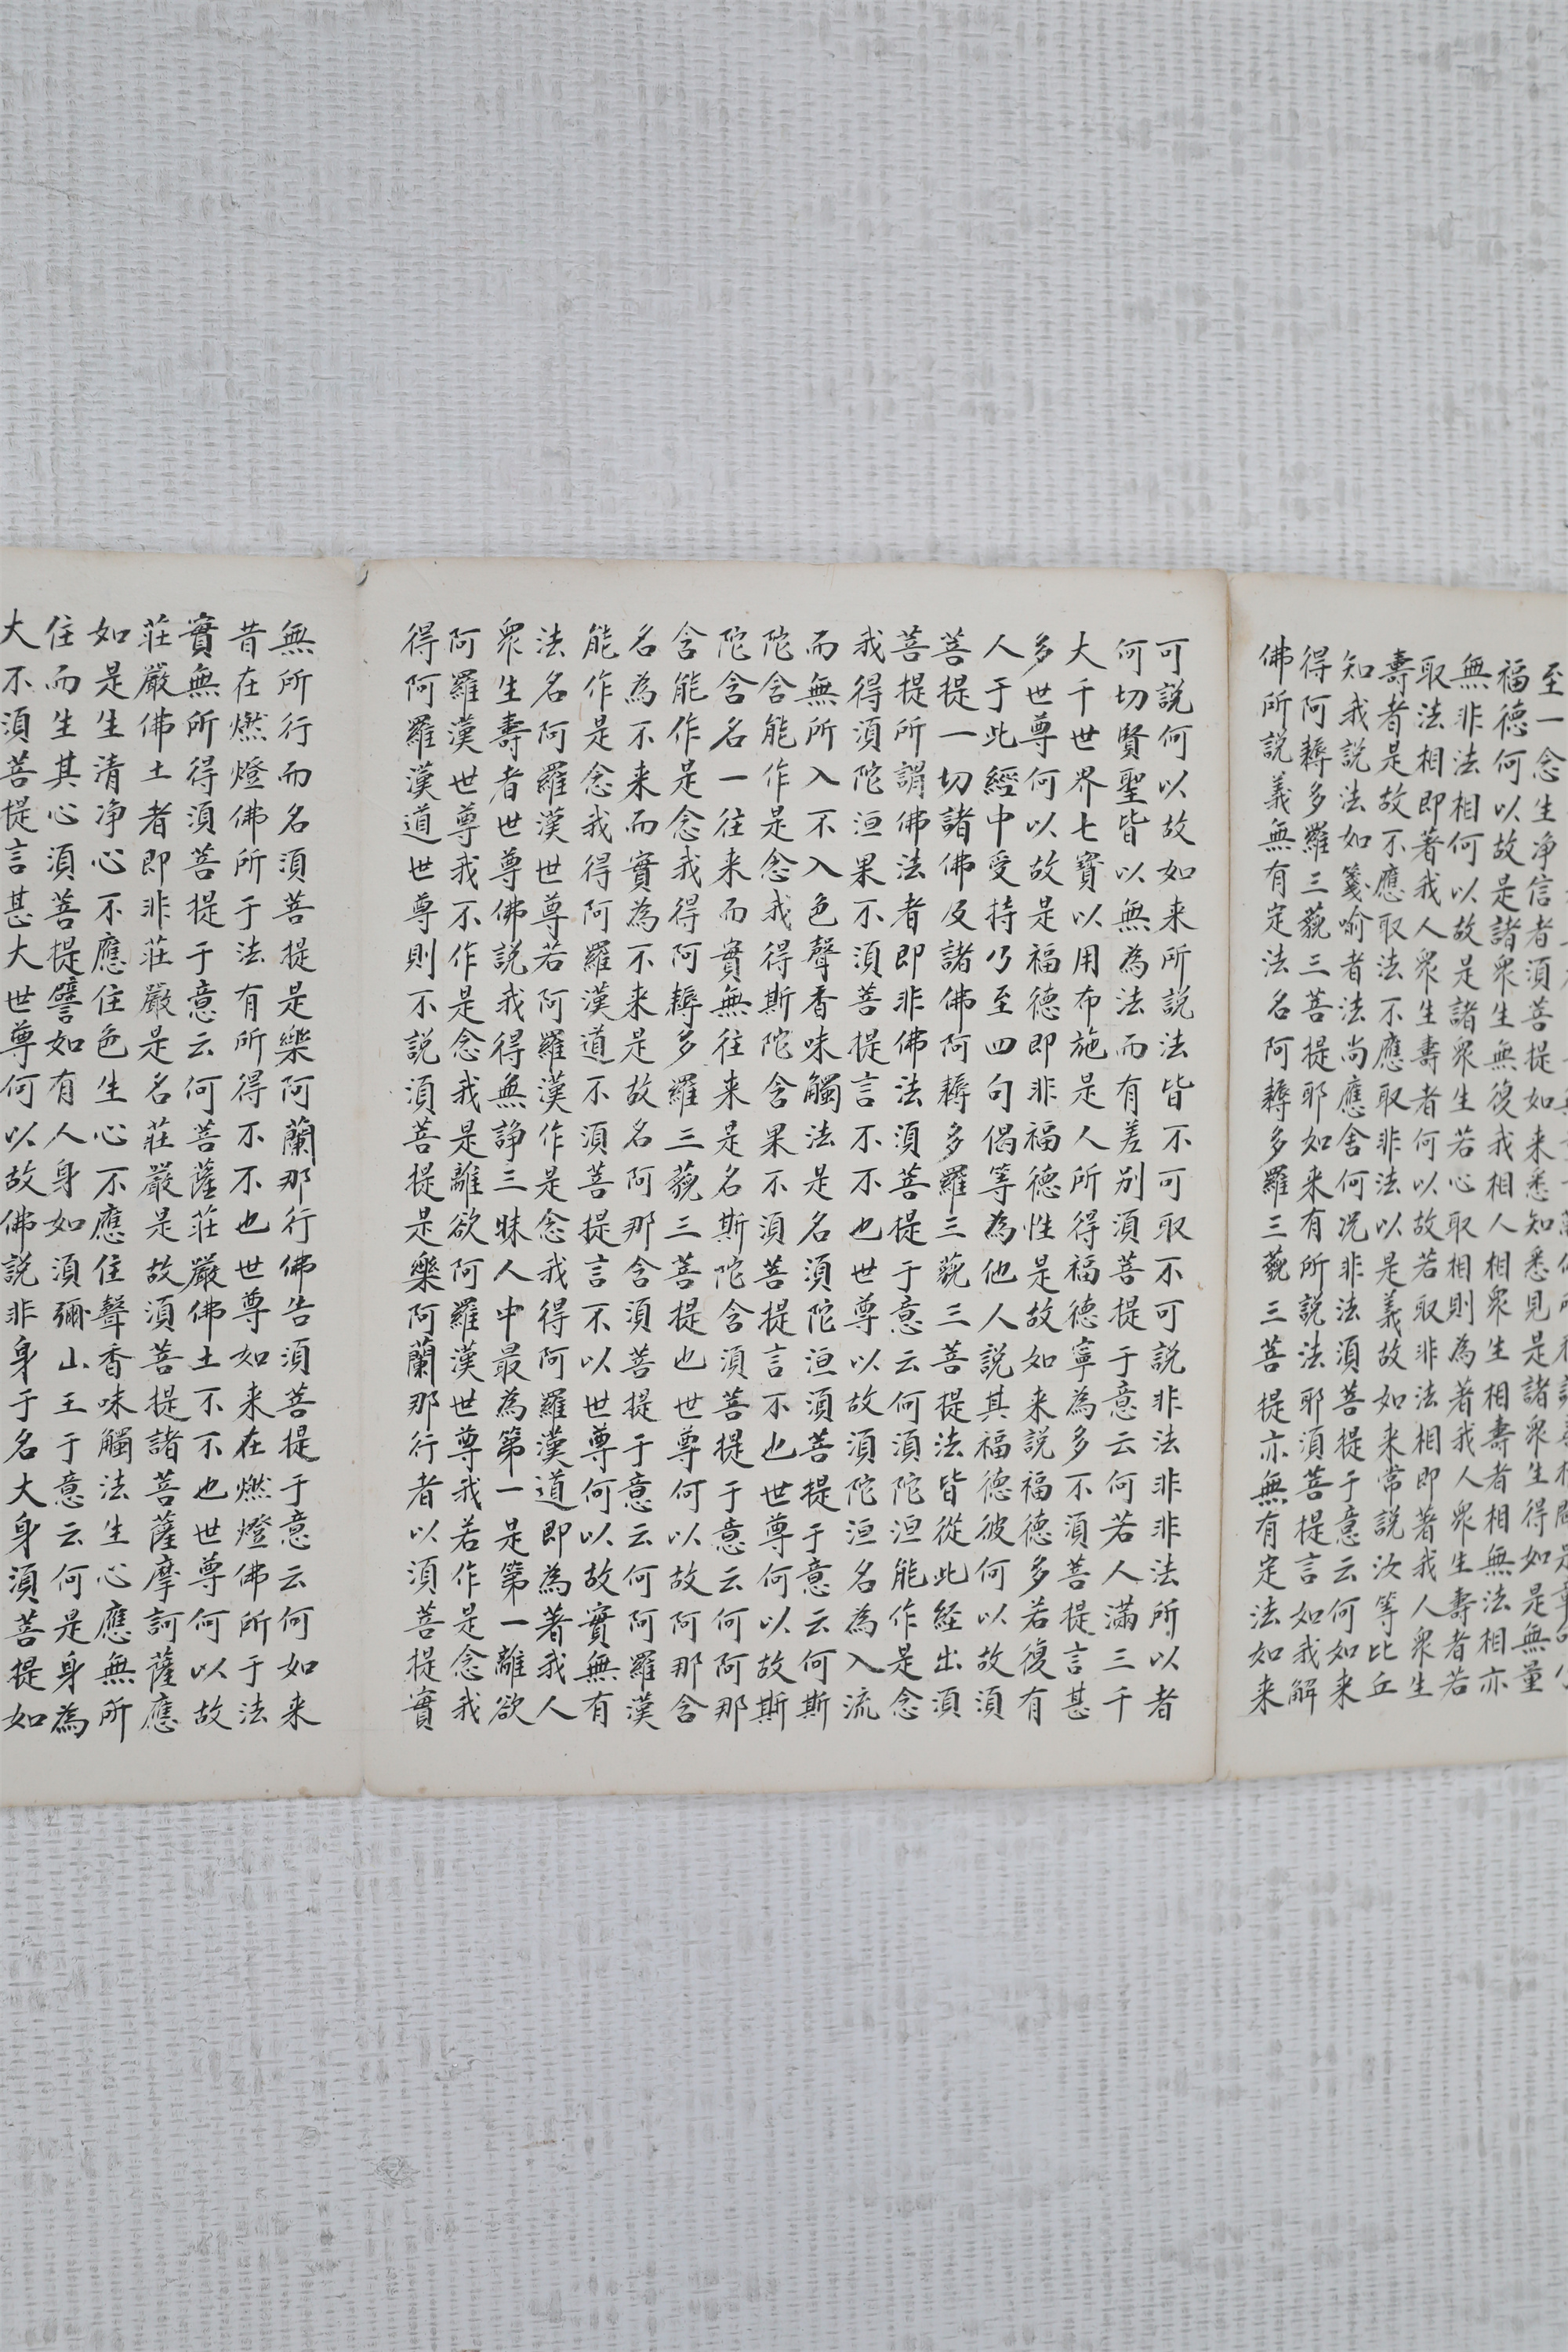 至一念生净信者須菩提如来悉知悉見是諸衆生得如是無量
福德何以故是諸衆生無復我相人相衆生相壽者相無法相亦
無非法相何以故是諸衆生若心取相則為著我人衆生壽者若
取法相即著我人衆生壽者何以故若取非法相即著我人衆生
壽者是故不應取法不應取非法以是義故如来常説汝等比丘
知我説法如箋喻者法尚應舍何况非法須菩提于意云何如来
得阿耨多羅三藐三菩提耶如来有所説法耶須菩提言如我解
佛所説義無有定法名阿耨多羅三藐三菩提亦無有定法如来
可説何以故如来所説法皆不可取不可説非法非非法所以者
何切賢聖皆以無為法而有差别須菩提于意云何若人滿三千
大千世界七寶以用布施是人所得福德寧為多不須菩提言甚
多世尊何以故是福德即非福德性是故如来説福德多若復有
人于此經中受持乃至四句偈等為他人説其福德彼何以故須
菩提一切諸佛及諸佛阿耨多羅三藐三菩提法皆從此経出須
菩提所謂佛法者即非佛法須菩提于意云何須陀洹能作是念
我得須陀洹果不須菩提言不不也世尊以故須陀洹名為入流
而無所入不入色聲香味觸法是名須陀洹須菩提于意云何斯
陀含能作是念我得斯陀含果不須菩提言不也世尊何以故斯
陀含名一往来而實無往来是名斯陀含須菩提于意云何阿那
含能作是念我得阿耨多羅三藐三菩提也世尊何以故阿那含
名為不来而實為不来是故名阿那含須菩提于意云何阿羅漢
能作是念我得阿羅漢道不須菩提言不以世尊何以故實無有
法名阿羅漢世尊若阿羅漢作是念我得阿羅漢道即為著我人
衆生壽者世尊佛説我得無諍三昧人中最為第一是第一離欲
阿羅漢世尊我不作是念我是離欲阿羅漢世尊我若作是念我
得阿羅漢道世尊則不説須菩提是樂阿蘭那行者以須菩提實
無所行而名須菩提是樂阿蘭那行佛告須菩提于意云何如来
昔在燃燈佛所于法有所得不不也世尊如来在燃燈佛所于法
實無所得須菩提于意云何菩薩莊嚴佛土不不也世尊何以故
莊嚴佛土者即非莊嚴是名莊嚴是故須菩提諸菩薩摩訶薩應
如是生清净心不應住色生心不應住聲香味觸法生心應無所
住而生其心須菩提譬如有人身如須彌山王于意云何是身為
大不須菩提言甚大世尊何以故佛説非身于名大身須菩提如